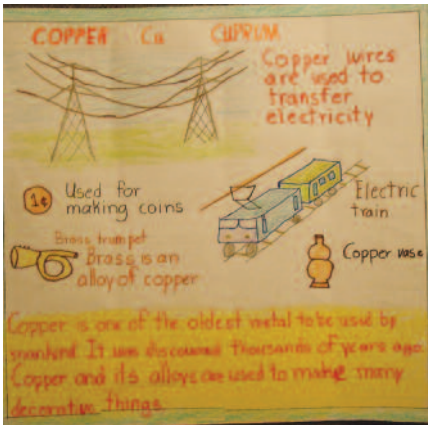 COPPER Cu CUPRUM
Copper wires
are used to
transfer
electricity
1¢
Used for
making coins
Electric
train
Brass trumpet
Brass is an
alloy of copper
Copper vase
Copper is one of the oldest metal to be used by
mankind. It was discovered thousands of years ago.
Copper and its alloys are used to make many
decorative things.